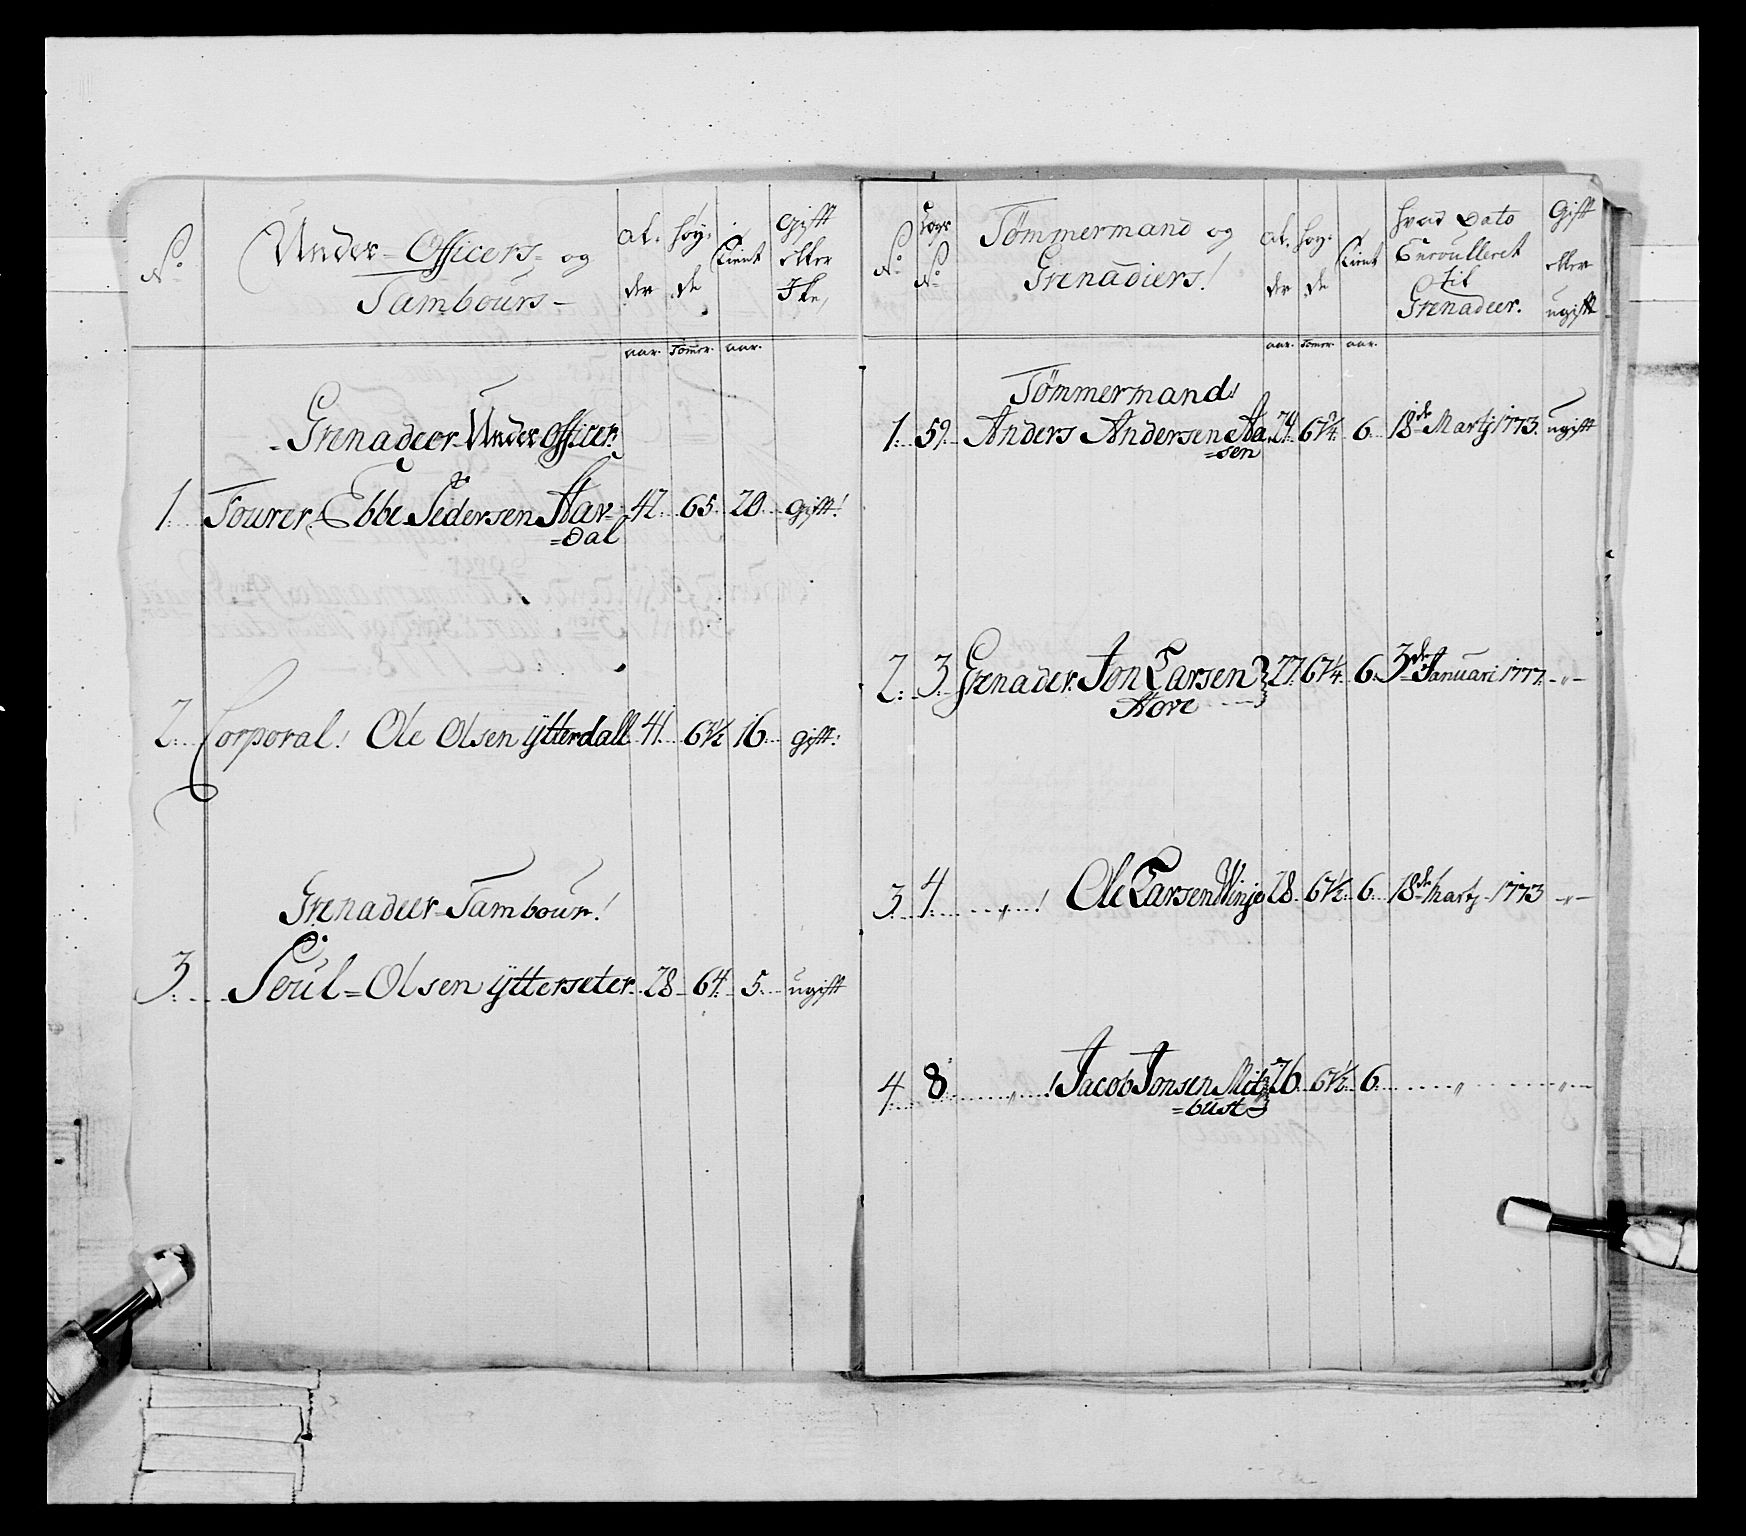 No
Under-Officers- og
Tambours-
Al-
der
høy-
de
tient
Gift
eller
Ike,
aar. Tomer. aar.
Grenadeer-Under Officer
1. Fourer, Ebbe Pedersen Hav- 42. 65. 20. gift!
=dal
2. Corporal! Ole Olsen ÿtterdall 41. 63½ 16. gift!
Grenadeer-Tambour!
3. Poul=Olsen ÿtterseter 28. 64. 5. ugift
No
No
Tømmermand og
Grenadiers!
al-
der
høy-
de
tient
hvad Dato
Enroulleret
til
Grenadeer.
Gift
eller
ugift
aar. Tomer. aar.
Tømmermand!
1. 59. Anders Andersen Aa 24. 6. 18de Martj 1773. ugift
=sen
2. 3. Grenader. Jon Larsen 27. 67¼. 6. 3de Januari 1777. -"-
Hove
3. 4. " ! Ole Larsen Winje 28. 67½. 6. 18de Martj 1773 -"-
4. 8. " ! Jacob Jonsen Mit 26. 67½. 6. " "
=bust